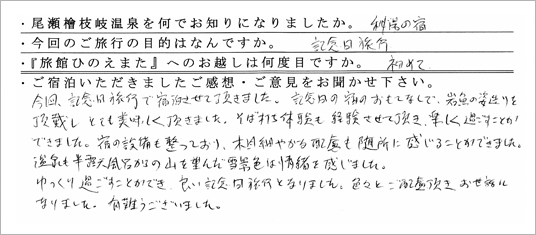 ・尾瀬檜枝岐温泉を何でお知りになりましたか。 秘湯の宿
・今回のご旅行の目的はなんですか。 記念日旅行
・『旅館ひのえまた』へのお越しは何度目ですか。 初めて
・ご宿泊いただきましたご感想・ご意見をお聞かせ下さい。
今回、記念日旅行で宿泊させて頂きました。記念日の宿のおもてなしで、岩魚の姿造りを
頂戴し とても美味しく頂きました。そば打ち体験も経験させて頂き、楽しく過ごすことが
できました。宿の設備も整っており、木目細やかな配慮も随所に感じることができました。
温泉も半露天風呂からの山を望んだ雪景色は情緒を感じました。
ゆっくり過ごすことができ、良い記念日旅行となりました。色々とご配慮頂き お世話に
なりました。有難うございました。